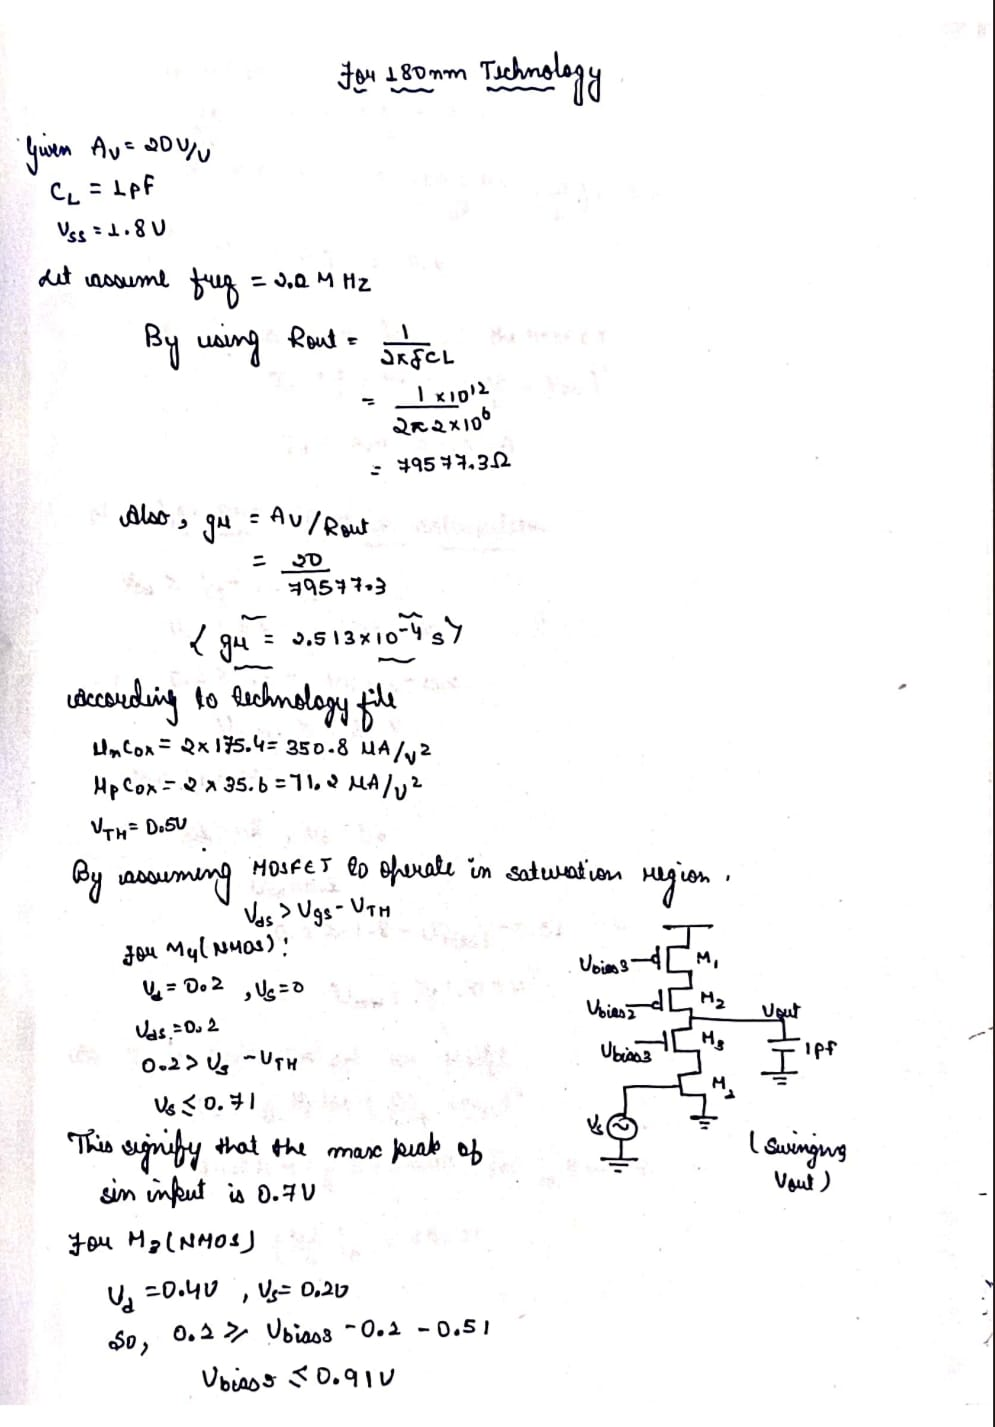 For 180nm Technology
Given Av = 20V/V
CL = 1pf
Vss = 1.8V
Let assume freq = 2.0 MHz
By using Rout = 1 / 2πfCL
= 1×10^12 / 2π2×10^6
= 79577.3Ω
Also, gm = Av/Rout
= 20 / 79577.3
{ gm = 2.513×10^-4 s}
according to technology file
μnCox = 2×175.4 = 350.8 μA/v2
μpCox = 2×35.6 = 71.2 μA/v2
VTH = 0.5V
By assuming MOSFET to operate in saturation region,
Vds > Vgs - VTH
for M4(NMOS):
Vd = 0.2 , Vs=0
Vds = 0.2
0.2 > Vg - VTH
Vs ≤ 0.71
This signify that the max peak of
sin input is 0.7V
For M3(NMOS)
Vd = 0.4V , Vs = 0.2V
So, 0.2 ≥ Vbias3 - 0.2 - 0.51
Vbias3 ≤ 0.91V
Vbias3
M1
Vbias2
M2
Vout
Vbias3
M3
1pf
Vs
(Swinging
Vout)